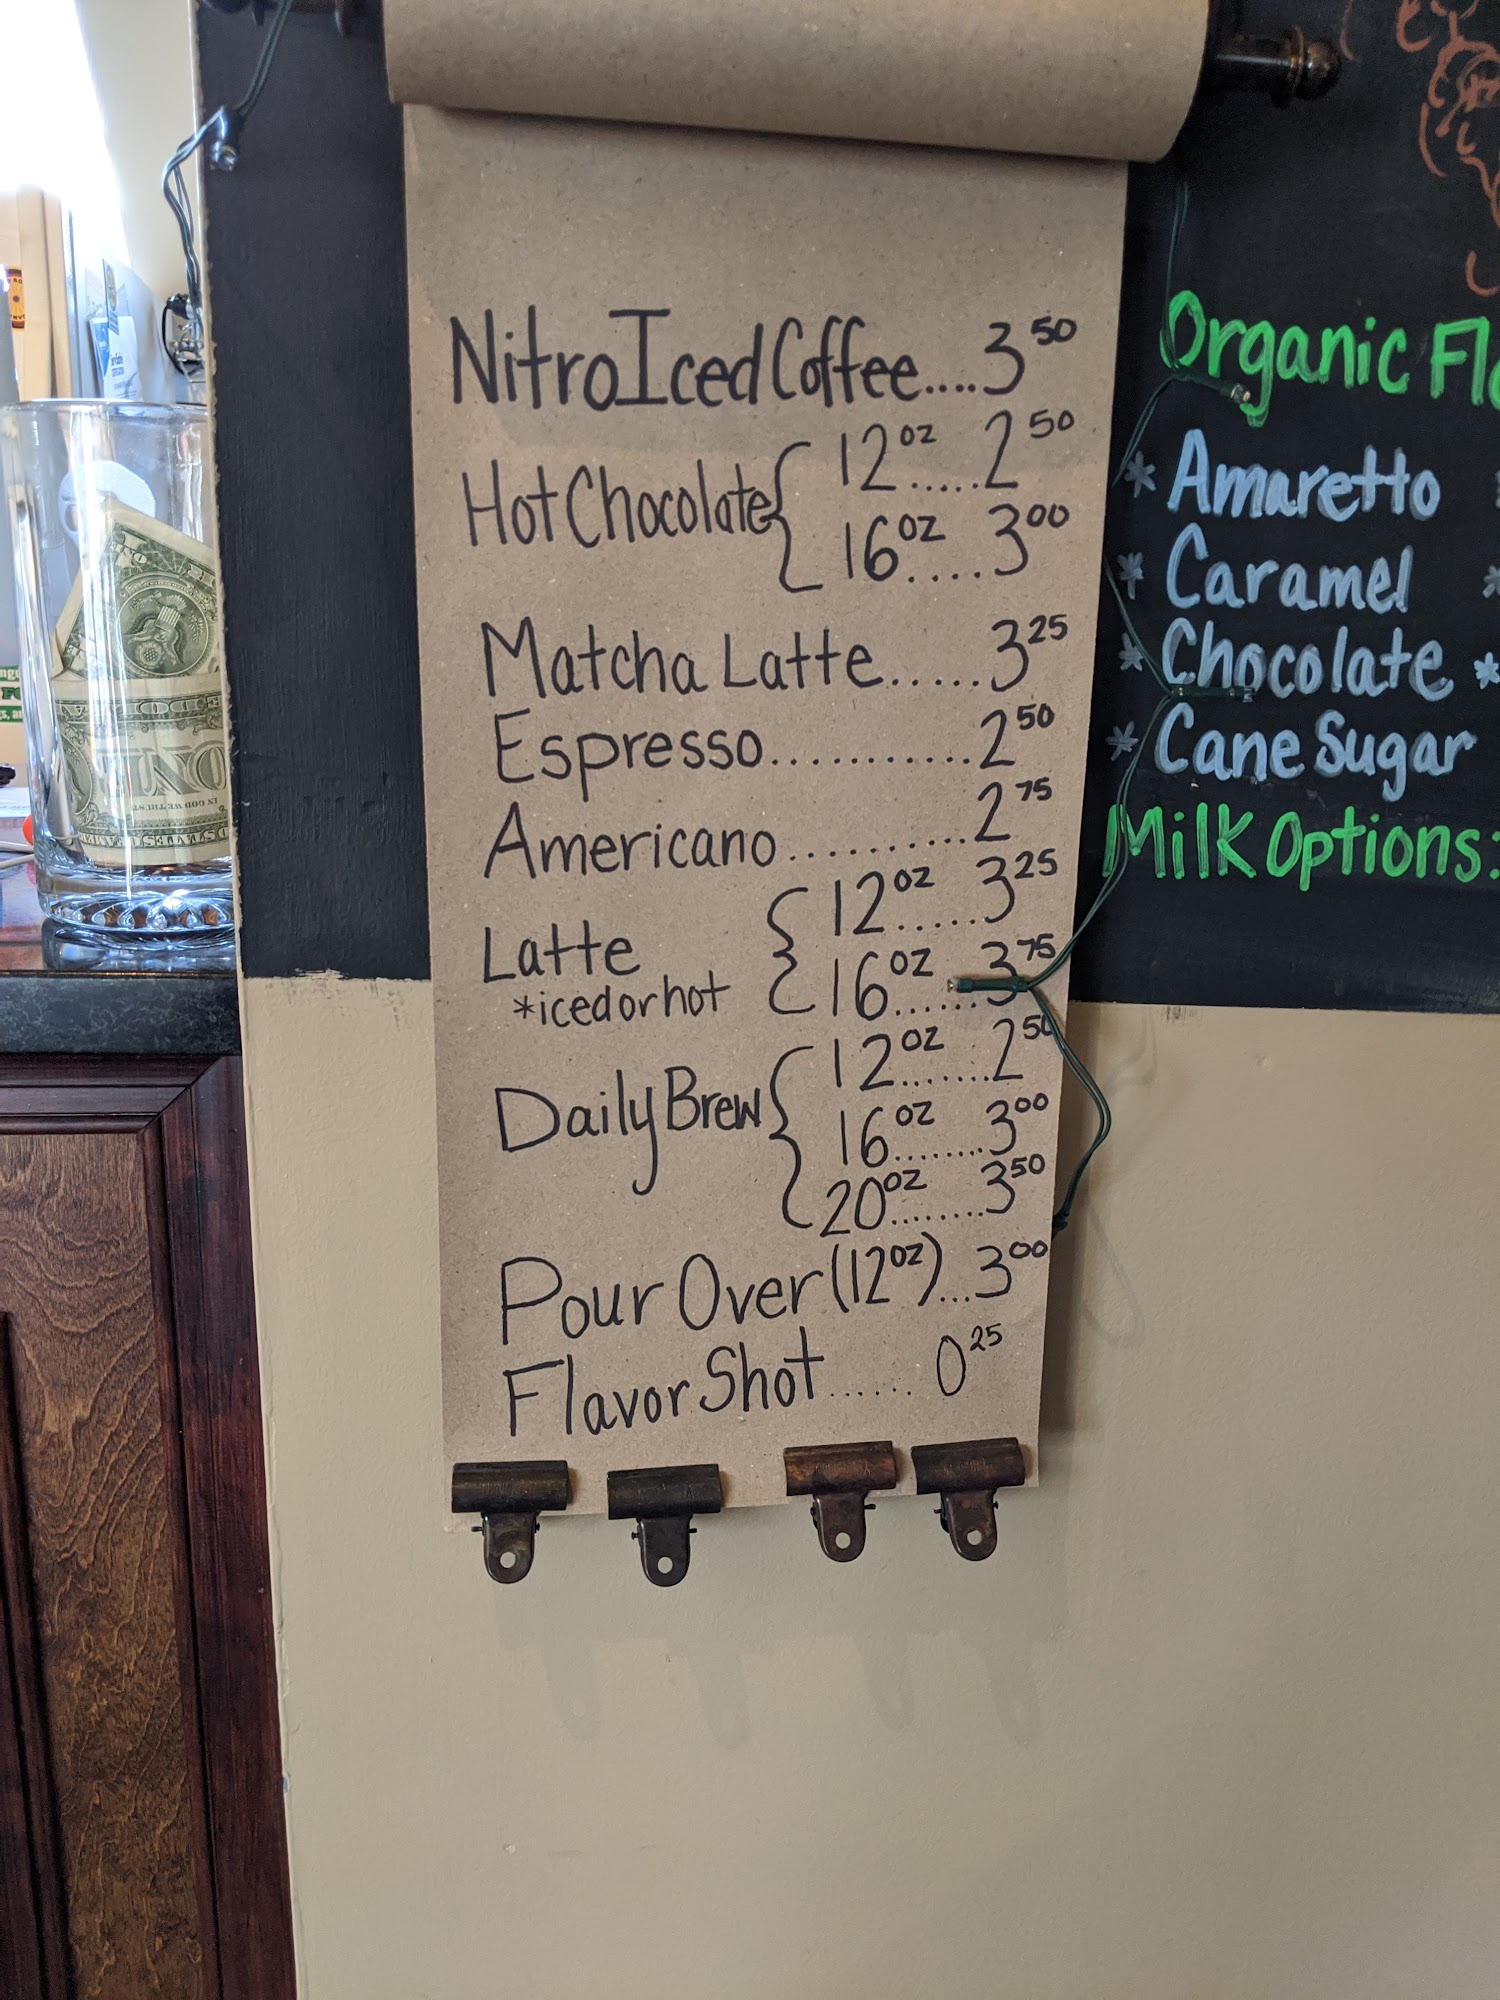 Nitro Iced Coffee....3 50
Hot Chocolate { 12 oz.....2 50
16 oz....3 00
Matcha Latte.....3 25
Espresso...........2 50
Americano..........2 75
Latte { 12 oz.....3 25
*iced or hot 16 oz......3 75
Daily Brew { 12 oz.......2 50
16 oz........3 00
20 oz........3 50
Pour Over (12 oz)...3 00
Flavor Shot...... 0 25
Organic
* Amaretto
* Caramel *
* Chocolate *
* Cane Sugar
Milk Options:
ONE
IN GOD WE TRUST